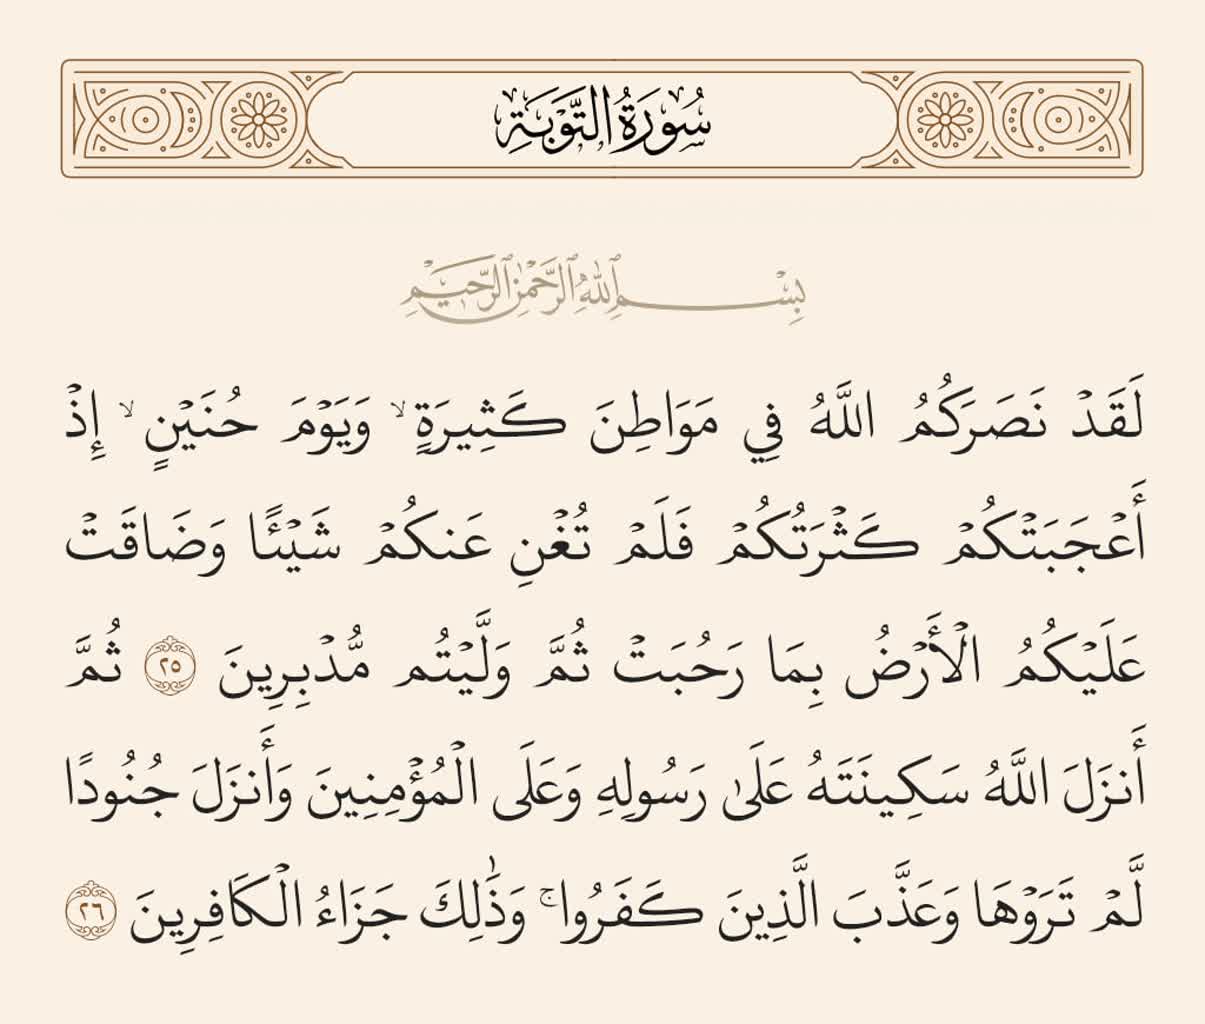 سُورَةُ التَّوْبَةِ
بِسْمِ ٱللَّهِ ٱلرَّحْمَٰنِ ٱلرَّحِيمِ
لَقَدْ نَصَرَكُمُ اللَّهُ فِي مَوَاطِنَ كَثِيرَةٍ ۙ وَيَوْمَ حُنَيْنٍ ۙ إِذْ
أَعْجَبَتْكُمْ كَثْرَتُكُمْ فَلَمْ تُغْنِ عَنكُمْ شَيْئًا وَضَاقَتْ
عَلَيْكُمُ الْأَرْضُ بِمَا رَحُبَتْ ثُمَّ وَلَّيْتُم مُّدْبِرِينَ ٢٥ ثُمَّ
أَنزَلَ اللَّهُ سَكِينَتَهُ عَلَىٰ رَسُولِهِ وَعَلَى الْمُؤْمِنِينَ وَأَنزَلَ جُنُودًا
لَّمْ تَرَوْهَا وَعَذَّبَ الَّذِينَ كَفَرُوا ۚ وَذَٰلِكَ جَزَاءُ الْكَافِرِينَ ٢٦